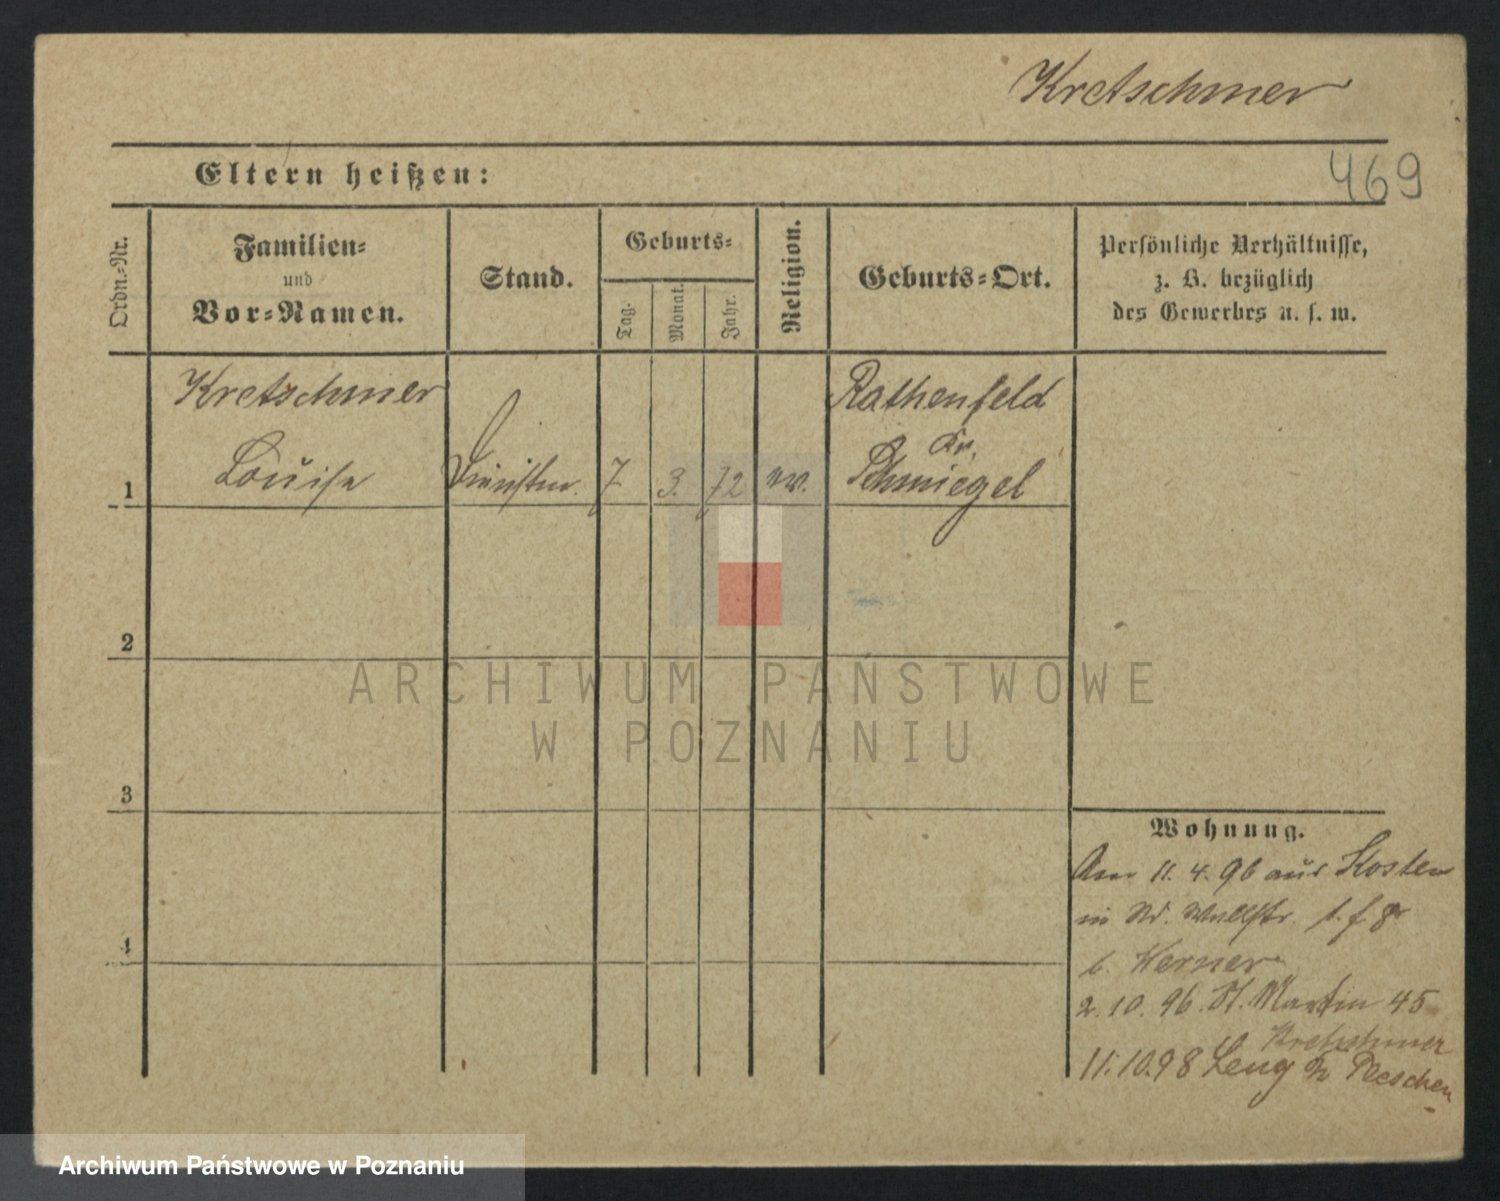 Kretschmer
Eltern heißen:
469
Ordn.-Nr.
Familien-
und
Vor-Namen.
Stand.
Geburts-
Tag.
Monat.
Jahr.
Religion.
Geburts-Ort.
Persönliche Verhältnisse,
z. B. bezüglich
des Gewerbes u. s. w.
Kretschmer
Louise
Rathenfeld
Kr.
Schmiegel
1
7
3.
72
ev.
2
3
4
Wohnung.
Am 11. 4. 96 aus Kosten
in
b. Werner
2. 10. 96. St. Martin 45
Kretschmer
11.10.98 Pleschen
ARCHIWUM PAŃSTWOWE
W POZNANIU
Archiwum Państwowe w Poznaniu